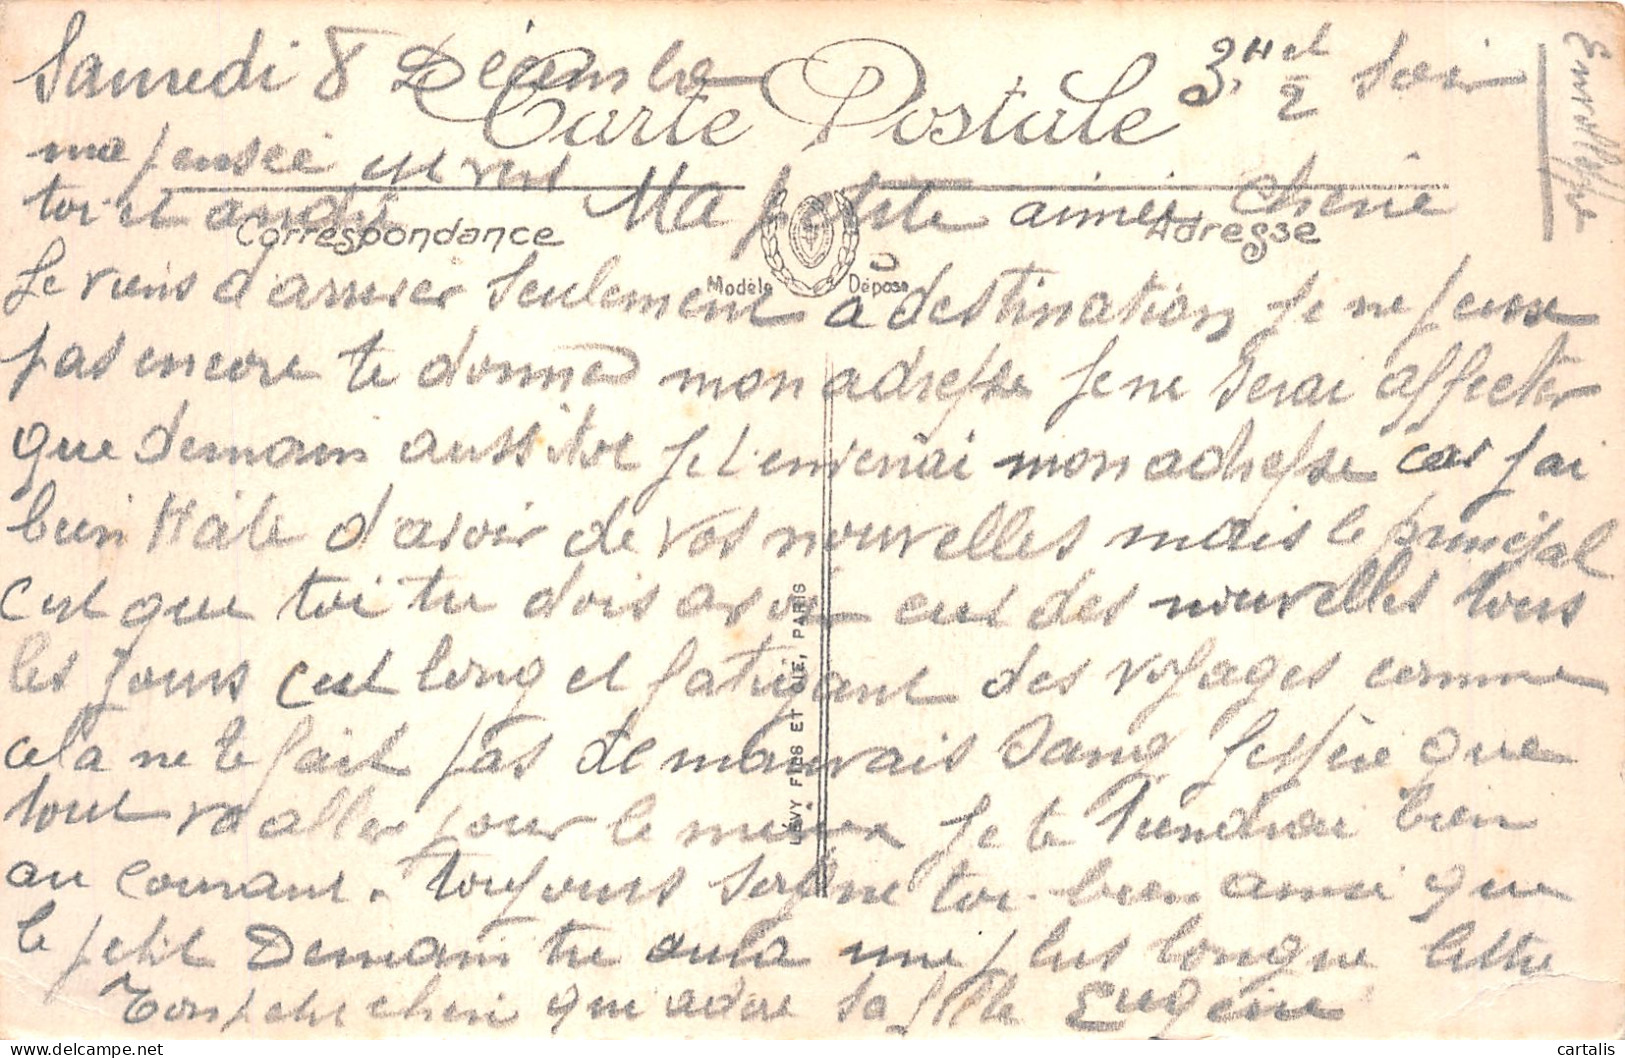 Samedi 8 Décembre 3H et 1/2 soir
Carte Postale
ma pensée est vers
toi et
Ma petite aimée Chérie
Correspondance
Adresse
Modèle Déposé
Je viens d'arriver seulement a destination Je ne peux
pas encore te donner mon adresse Je ne serai affecter
que demain aussitot Je t'enverai mon adresse car J'ai
bien Hâte d'avoir de vos nouvelles mais le principal
c'est que toi tu dois avoir eut des nouvelles tous
les Jours c'est long et fatigant des voyages comme
cela ne te fait pas de mauvais sang J'espère que
tout va aller pour le mieux Je te Tiendrai bien
au courant. Toujours soigne toi bien ainsi que
le petit Demain tu aura une plus longue lettre
Ton petit cheri qui adore sa fille Eugène
LÉVY FILS ET CIE, PARIS
cartalis